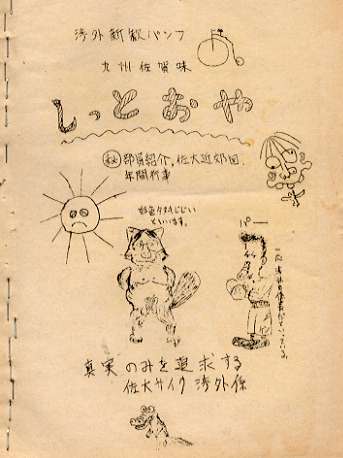 渉外新歓パンフ
九州佐賀味
しっとおや
㊙部員紹介、佐大近郊図、
年間行事
といいます。
パー
真実のみを追求する
佐大サイク渉外係